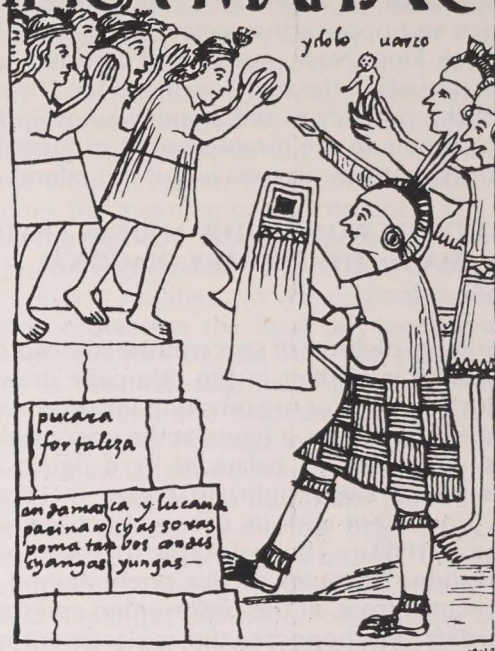 ydolo uarco
pucara
fortaleza
andamarca y lucana
parinaco chas soras
poma tanbos condes
cyangas yungas